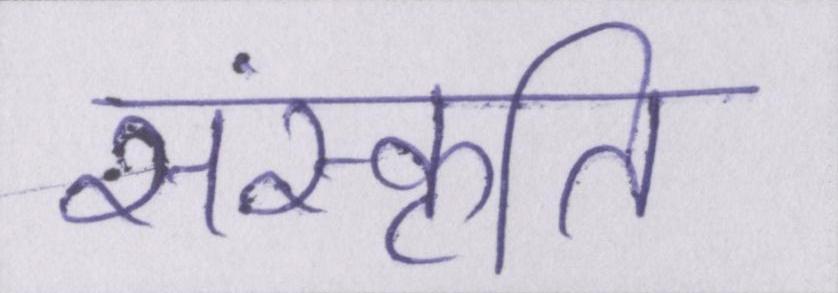 संस्कृति